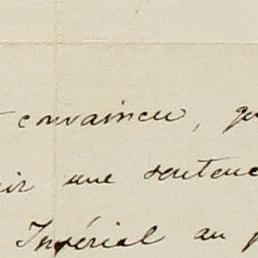 convaincu, qu
une sentenc
Impérial au